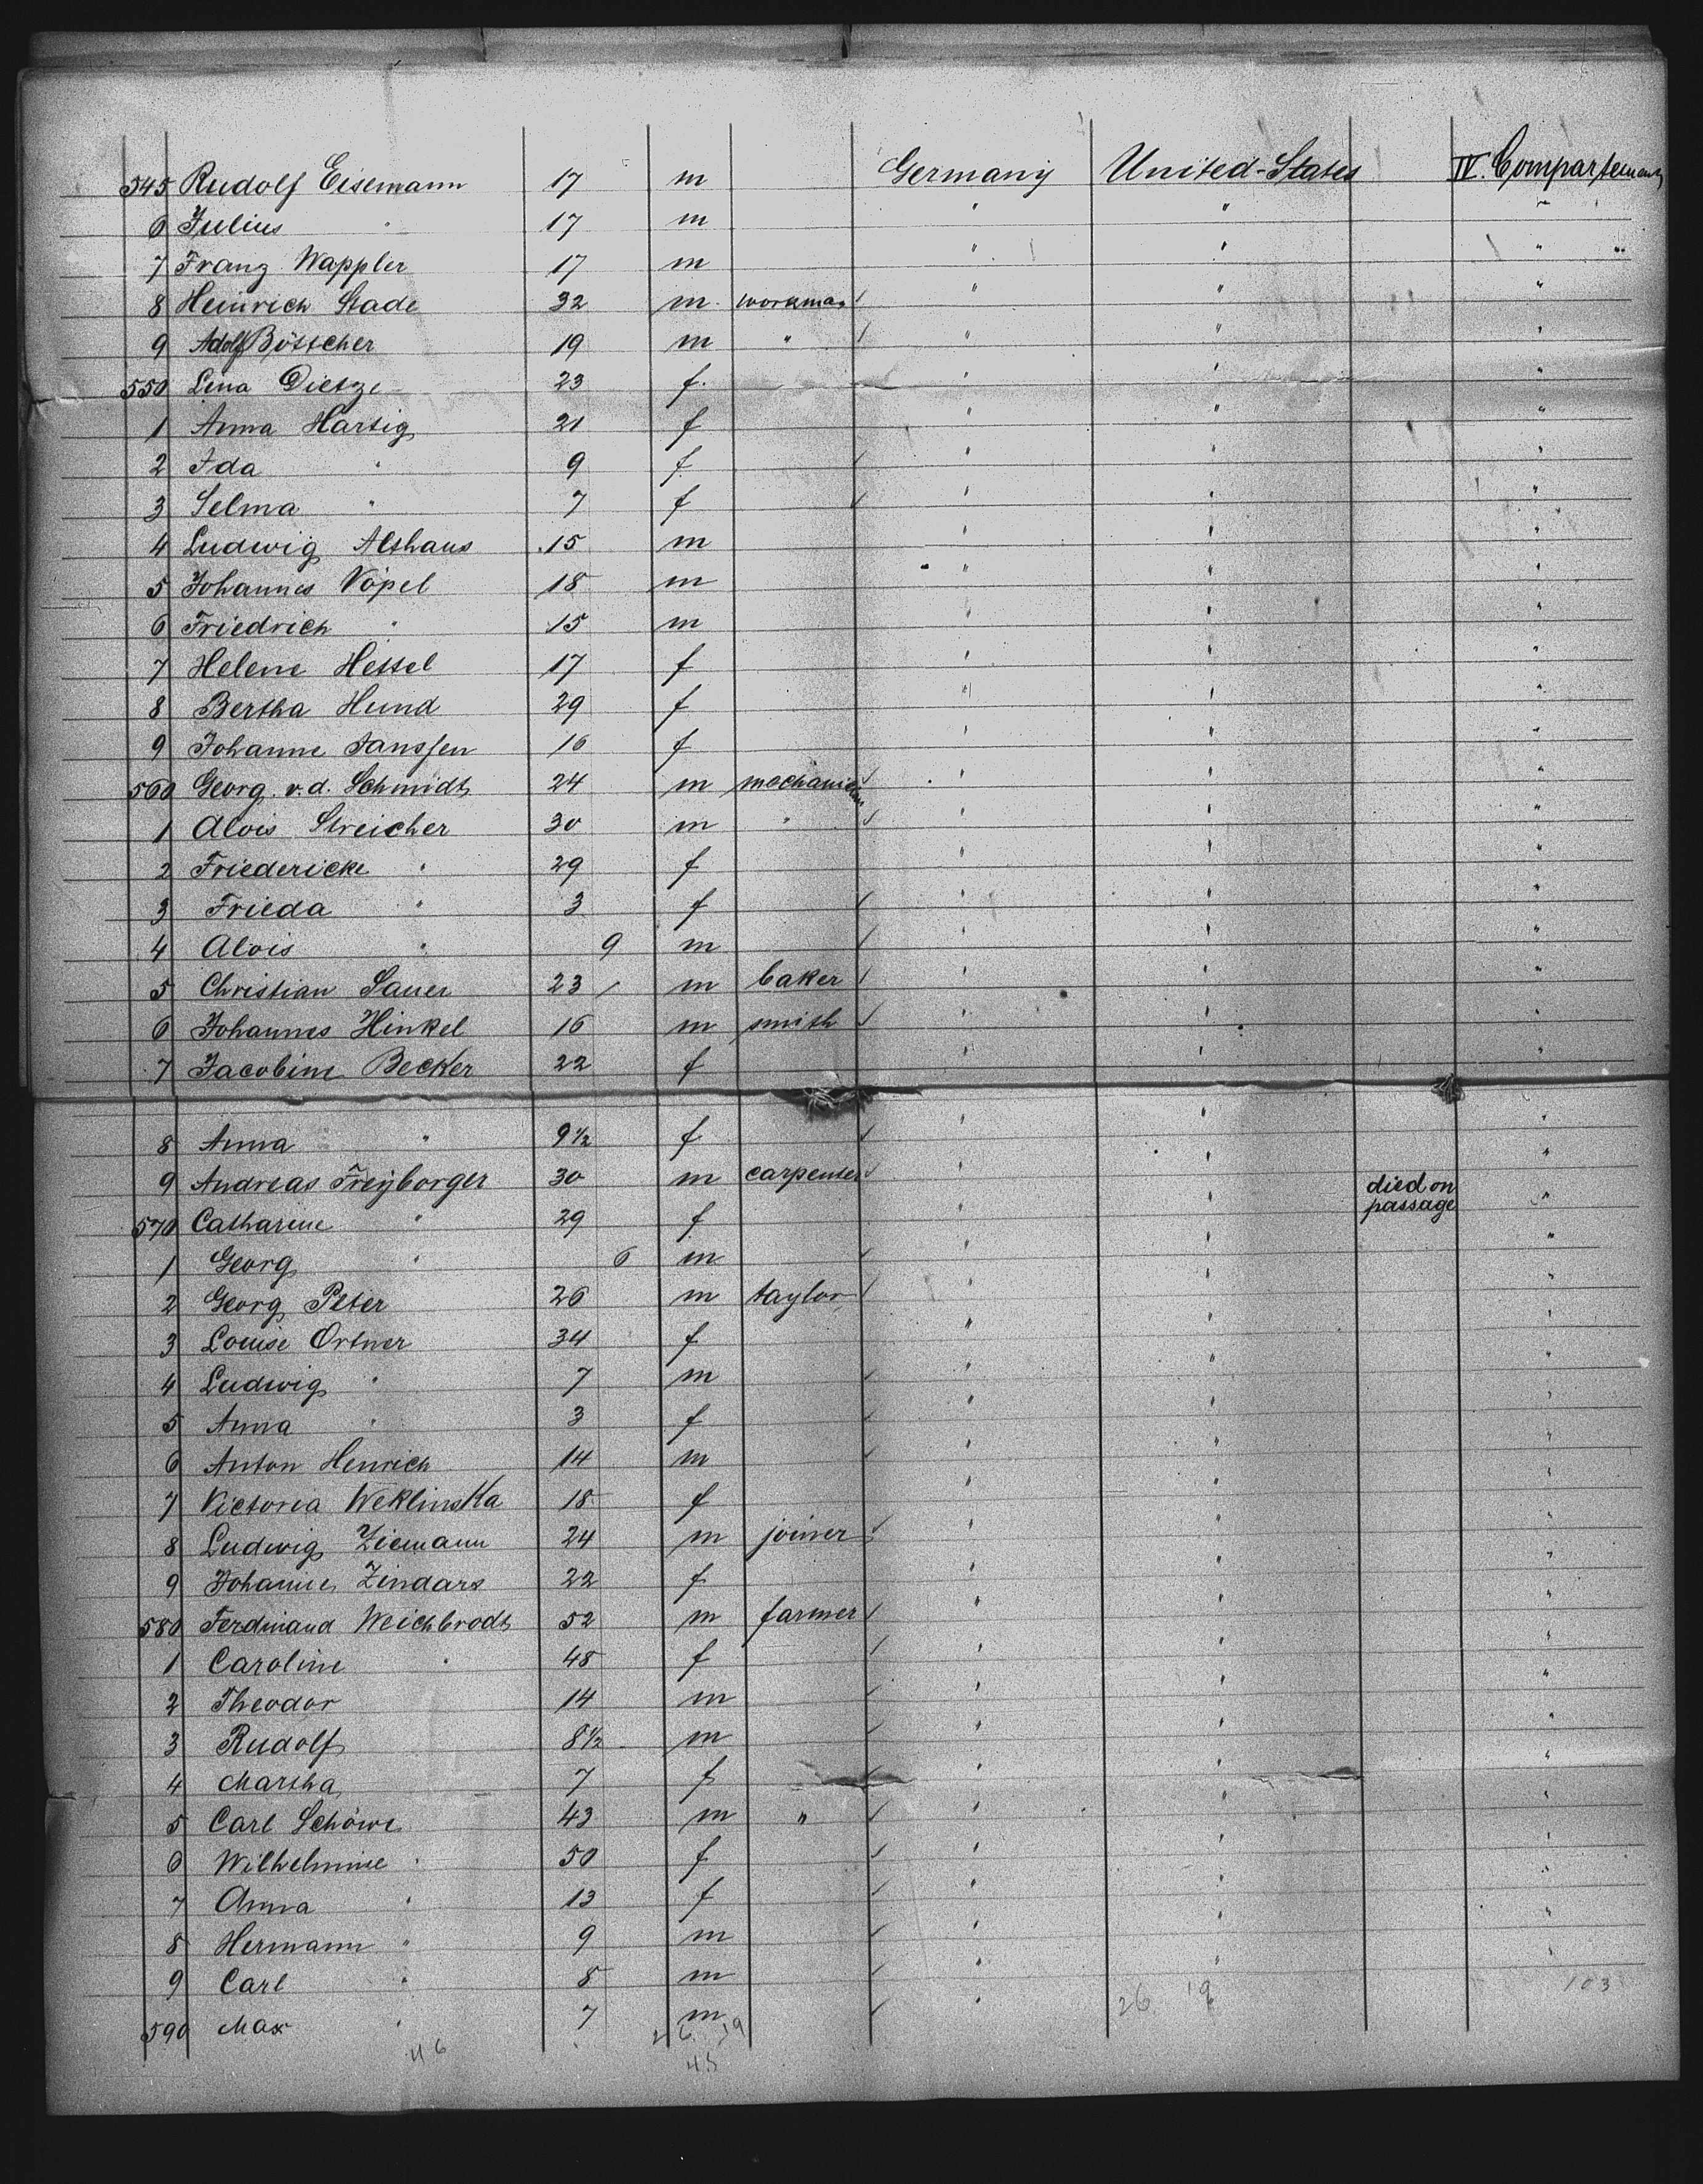 545 Rudolf Eisemann 17 m Germany United-States IV. Compartement
6 Julius " 17 m " " "
7 Franz Wappler 17 m " " "
8 Heinrich Stade 32 m workman " " "
9 Adolf Böttcher 19 m " " " "
550 Lina Dietze 23 f. " " "
1 Anna Hartig 21 f " " "
2 Ida " 9 f " " "
3 Selma " 7 f " " "
4 Ludwig Althaus 15 m " " "
5 Johannes Vöpel 18 m " " "
6 Friedrich " 15 m " " "
7 Helene Hessel 17 f " " "
8 Bertha Hund 29 f " " "
9 Johanne Janssen 16 f " " "
560 Georg v. d. Schmidt 24 m mechanician " " "
1 Alois Streicher 30 m " " " "
2 Friedericke " 29 f " " "
3 Frieda " 3 f " " "
4 Alois " 9 m " " "
5 Christian Sauer 23 m baker " " "
6 Johannes Hinkel 16 m smith " " "
7 Jacobine Becker 22 f " " "
8 Anna " 9 1/2 f " " "
9 Andreas Freyborger 30 m carpenter " " "
570 Catharine " 29 f " " died on passage "
1 Georg " 6 m " " "
2 Georg Peter 26 m taylor " " "
3 Louise Ortner 34 f " " "
4 Ludwig " 7 m " " "
5 Anna " 3 f " " "
6 Anton Henrich 14 m " " "
7 Victoria Weklinska 18 f " " "
8 Ludwig Ziemann 24 m joiner " " "
9 Johanne Zindars 22 f " " "
580 Ferdinand Weichbrodt 52 m farmer " " "
1 Caroline " 48 f " " "
2 Theodor 14 m " " "
3 Rudolf 8 1/2 m " " "
4 Martha 7 f " " "
5 Carl Schöwe 43 m " " " "
6 Wilhelmine " 50 f " " "
7 Anna " 13 f " " "
8 Hermann " 9 m " " "
9 Carl " 8 m " " "
590 Max " 7 m "
26 19 103
46 26 19
45